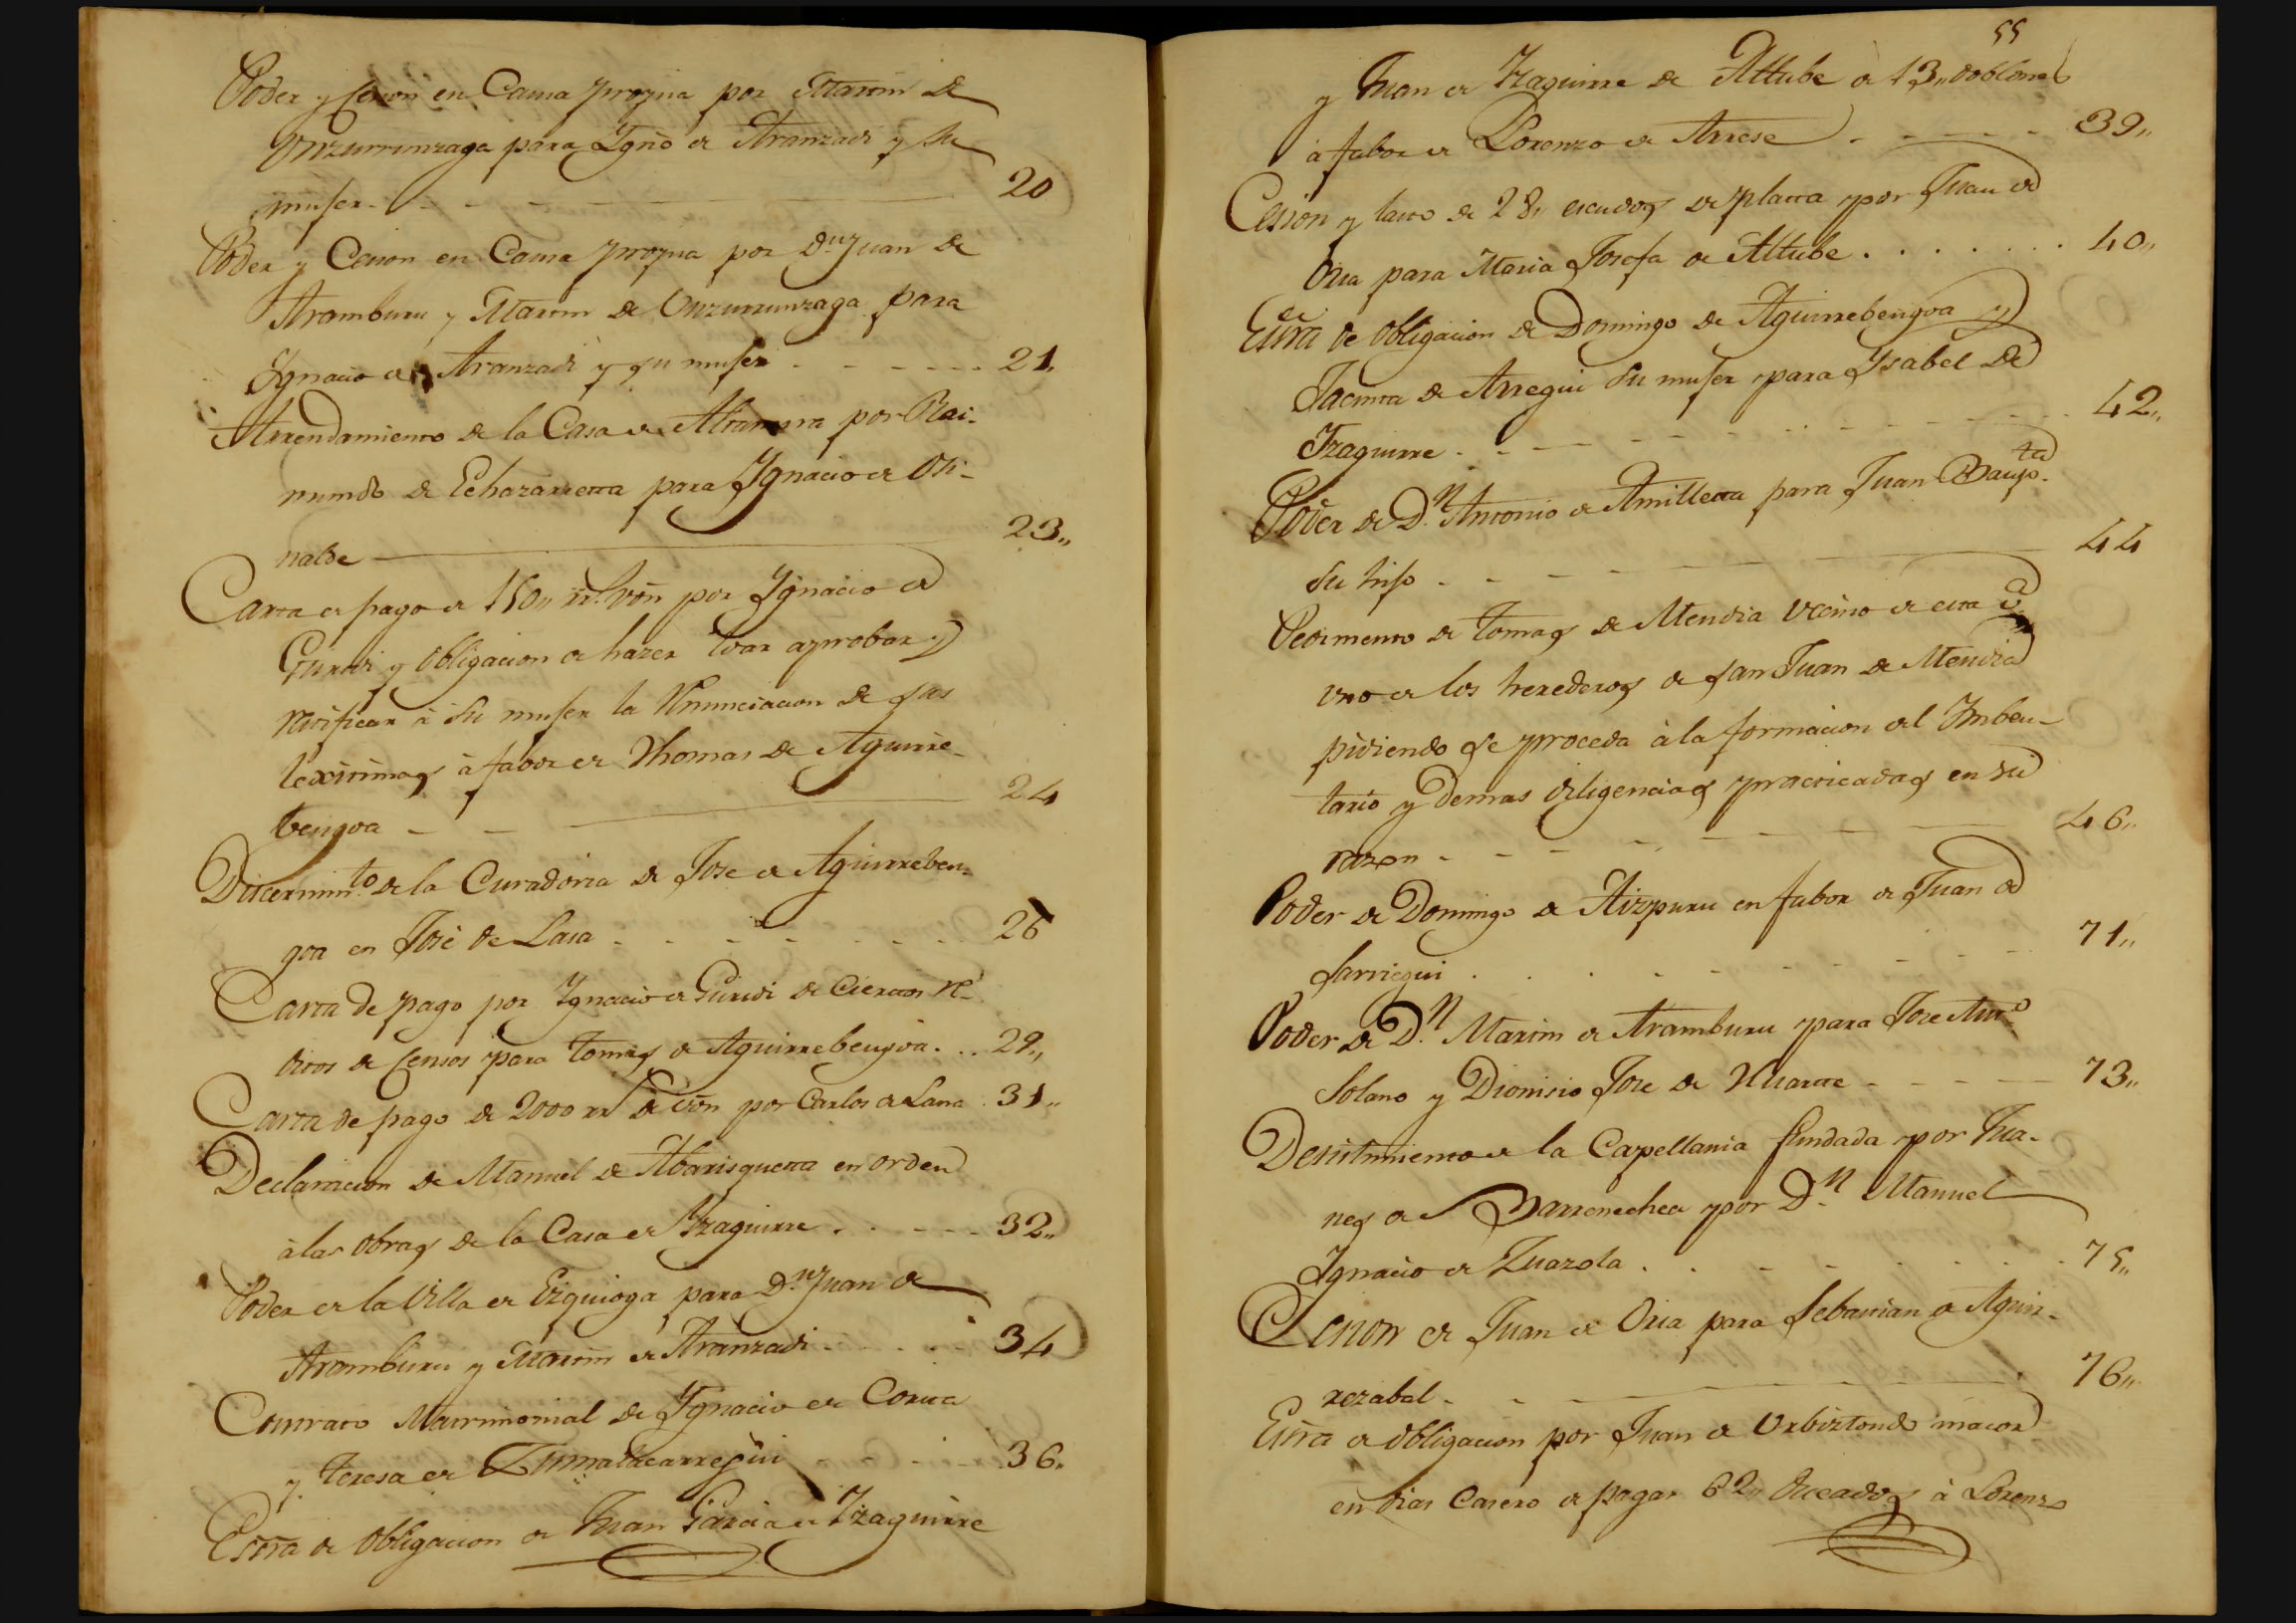 Poder y Cesion en Causa propria por Martin de
Unzurrunzaga para Ygnº de Aranzadi y su
muger - - - - 20
Poder y Cesion en Causa propria por Dn Juan de
Aramburu y Martin de Unzurrunzaga para
Ygnacio de Aranzadi y su muger - - - - 21,,
Arrendamiento de la Casa de Altamira por Rai-
mundo de Echazarreta para Ygnacio de Oti-
nalde - - - 23,,
Carta de pago de 150,, rrs. von por Ygnacio de
Guridi y obligacion de hazer loar aprobar y
rratificar à su muger la Rnunciacion de sus
lexitimas à fabor de Thomas de Aguirre-
bengoa - - - 24
Discernimto. de la Curadoria de Jose de Aguirreben-
goa en José de Lasa - - - - 26
Carta de pago por Ygnacio de Guridi de Ciertos re-
ditos de Censos para Tomas de Aguirrebengoa. . . 29,,
Carta de pago de 2000 rrs de von por Carlos de Lasa . 31,,
Declaracion de Manuel de Abarisqueta en orden
à las obras de la Casa de Yzaguirre . . - - - 32,,
Poder de la Villa de Ezquioga para Dn Juan de
Aramburu y Martin de Aranzadi - . . . . 34
Contrato Matrimonial de Ygnacio de Corta
y Teresa de Zumalacarregui - - - - 36,,
Escra de obligacion de Juan Garcia de Yzaguirre
55
y Juan de Yzaguirre de Altube de 13,, doblones
à fabor de Lorenzo de Arrese - - - - 39,,
Cesion y lasto de 28,, escudos de platta por Juan de
Oria para Maria Josefa de Altube . . . . . . . 40,,
Escra de obligacion de Domingo de Aguirrebengoa y
Jacinta de Arregui su muger para Ysabel de
Yzaguirre . - - - - - 42,,
Poder de Dn. Antonio de Amilleta para Juan Baupta.
su hijo - - - - - 44
Pedimento de Tomas de Mendia vecino de esta va
uno de los herederos de san Juan de Mendia
pidiendo se proceda à la formacion del Imben-
tario y demas diligencias practicadas en su
razon - - - - - 46,,
Poder de Domingo de Aizpuru en fabor de Juan de
sarriegui . . . - - - - 71,,
Poder de Dn. Martin de Aramburu para Jose Anto
Solano y Dionisio Jose de Huarte - - - - 73,,
Desistimiento de la Capellania fundada por Jua-
nes de Barrenechea por Dn. Manuel
Ygnacio de Zuazola . . - - - . . 75,,
Cesion de Juan de Oria para Sebastian de Aguir-
rezabal - - - - 76,,
Escra de obligacion por Juan de Urbiztondo maior
en dias Casero de pagar 62,, Ducados à Lorenzo